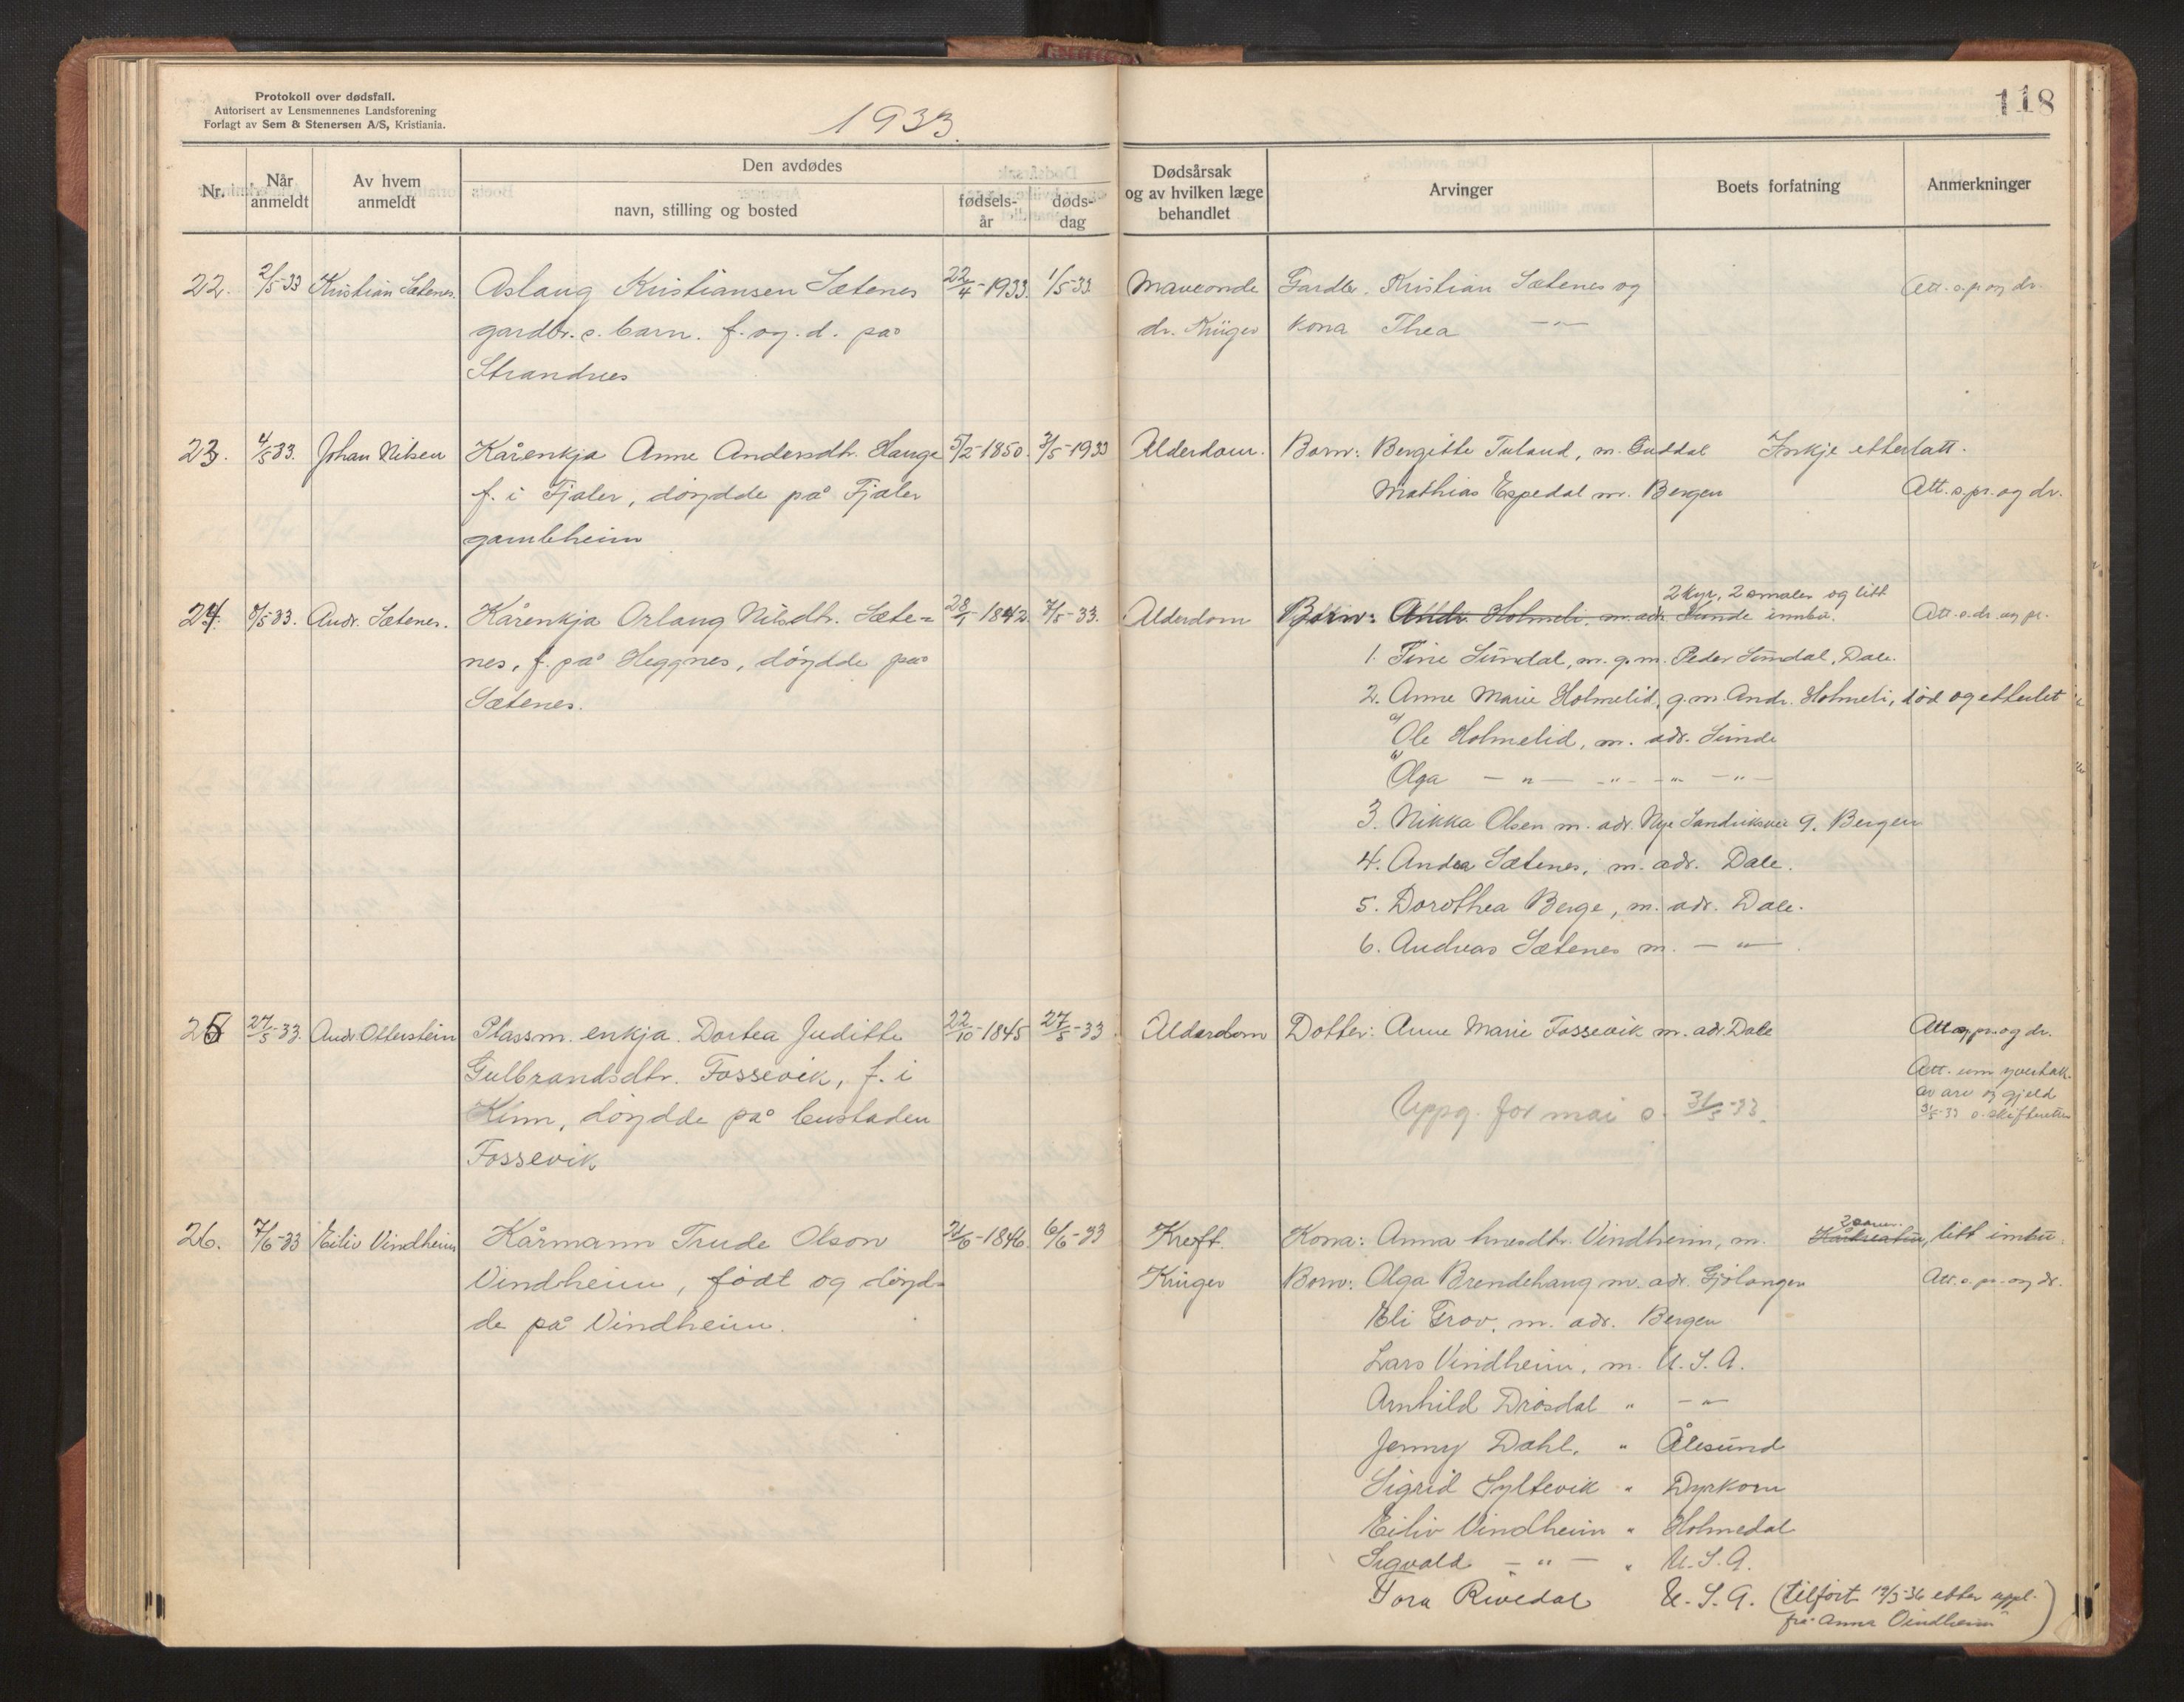 Protokoll over dødsfall.
Autorisert av Lensmennenes Landsforening
Forlagt av Sem & Stenersen A/S, Kristiania.
1933.
118
Nr.
Når anmeldt
Av hvem anmeldt
Den avdødes
navn, stilling og bosted
fødsels-år
døds-dag
Dødsårsak og av hvilken læge behandlet
Arvinger
Boets forfatning
Anmerkninger
22. 2/5-33 Kristian Sætenes. Aslaug Kristiansen Sætenes 22/4-1933. 1/5-33 Maveonde Gardbr. Kristian Sætenes og Att. s. p og dr.
gardbr.s. barn. f. og. d. på dr. Krüger kona Thea —"—
Strandnes
23. 4/5-33. Johan Nilsen Kårenkja Anne Andersdtr. Hauge 5/2-1850. 3/5-1933 Alderdom. Born: Bergitte Tuland, m. Guddal Inkje etterlatt.
f. i Fjaler, døydde på Fjaler Mathias Espedal m. Bergen Att. s. pr. og dr.
gamleheim
2 kyr, 2 smaler og litt
24. 8/5-33. Andr. Sætenes. Kårenkja Orlaug Nilsdtr. Sæte= 28/1-1842. 7/5-33. Alderdom Børn: Andr. Holmeli, m. adr. Sunde innbu. Att. s. dr. og pr.
nes, f. på Heggnes, døydde på 1. Tine Sundal, m. g.m. Peder Sundal, Dale.
Sætenes. 2. Anne Marie Holmelid, g.m. Andr. Holmeli, død og etterlet
a) Ole Holmelid, m. adr. Sunde
b) Olga — " — — " — — " — — " —
3. Nikka Olsen m. adr. Nye Sandviksvei 9. Bergen
4. Andrea Sætenes, m. adr. Dale.
5. Dorothea Berge, m. adr. Dale.
6. Andreas Sætenes m. — " — .
25 27/5-33. Andr. Otterstein Plassm. enkja. Dortea Juditte 22/10-1845 27/5-33 Alderdom Dotter: Anne Marie Fossevik m. adr. Dale Att. s. pr. og dr.
Gulbrandsdtr. Fossevik, f. i Att. um yvertak.
Kinn, døydde på bustaden Uppg. for mai s. 31/5-33. av arv og gjeld
Fossevik 31/5-33 s. skifteretten
2 sauer.
26. 7/6-33 Eiliv Vindheim Kårmann Trude Olson 21/6-1846. 6/6-33 Kreft. Kona: Anna Vindheim, m. litt innbu.
Vindheim, født og døyd- Krüger Born: Olga Brendehaug m. adr. Gjølanger Att. s. pr. og dr.
de på Vindheim. Eli Grov, m. adr. Bergen
Lars Vindheim, m. U.S.A.
Arnhild Drøsdal " — " —
Jenny Dahl. " Ålesund
Sigrid Syltevik " Dyrkorn
Eiliv Vindheim " Holmedal
Sigvald — " — " U.S.A.
Tora Rivedal U.S.A. (tilført 19/3-36 etter uppl.
frå Anna Vindheim)